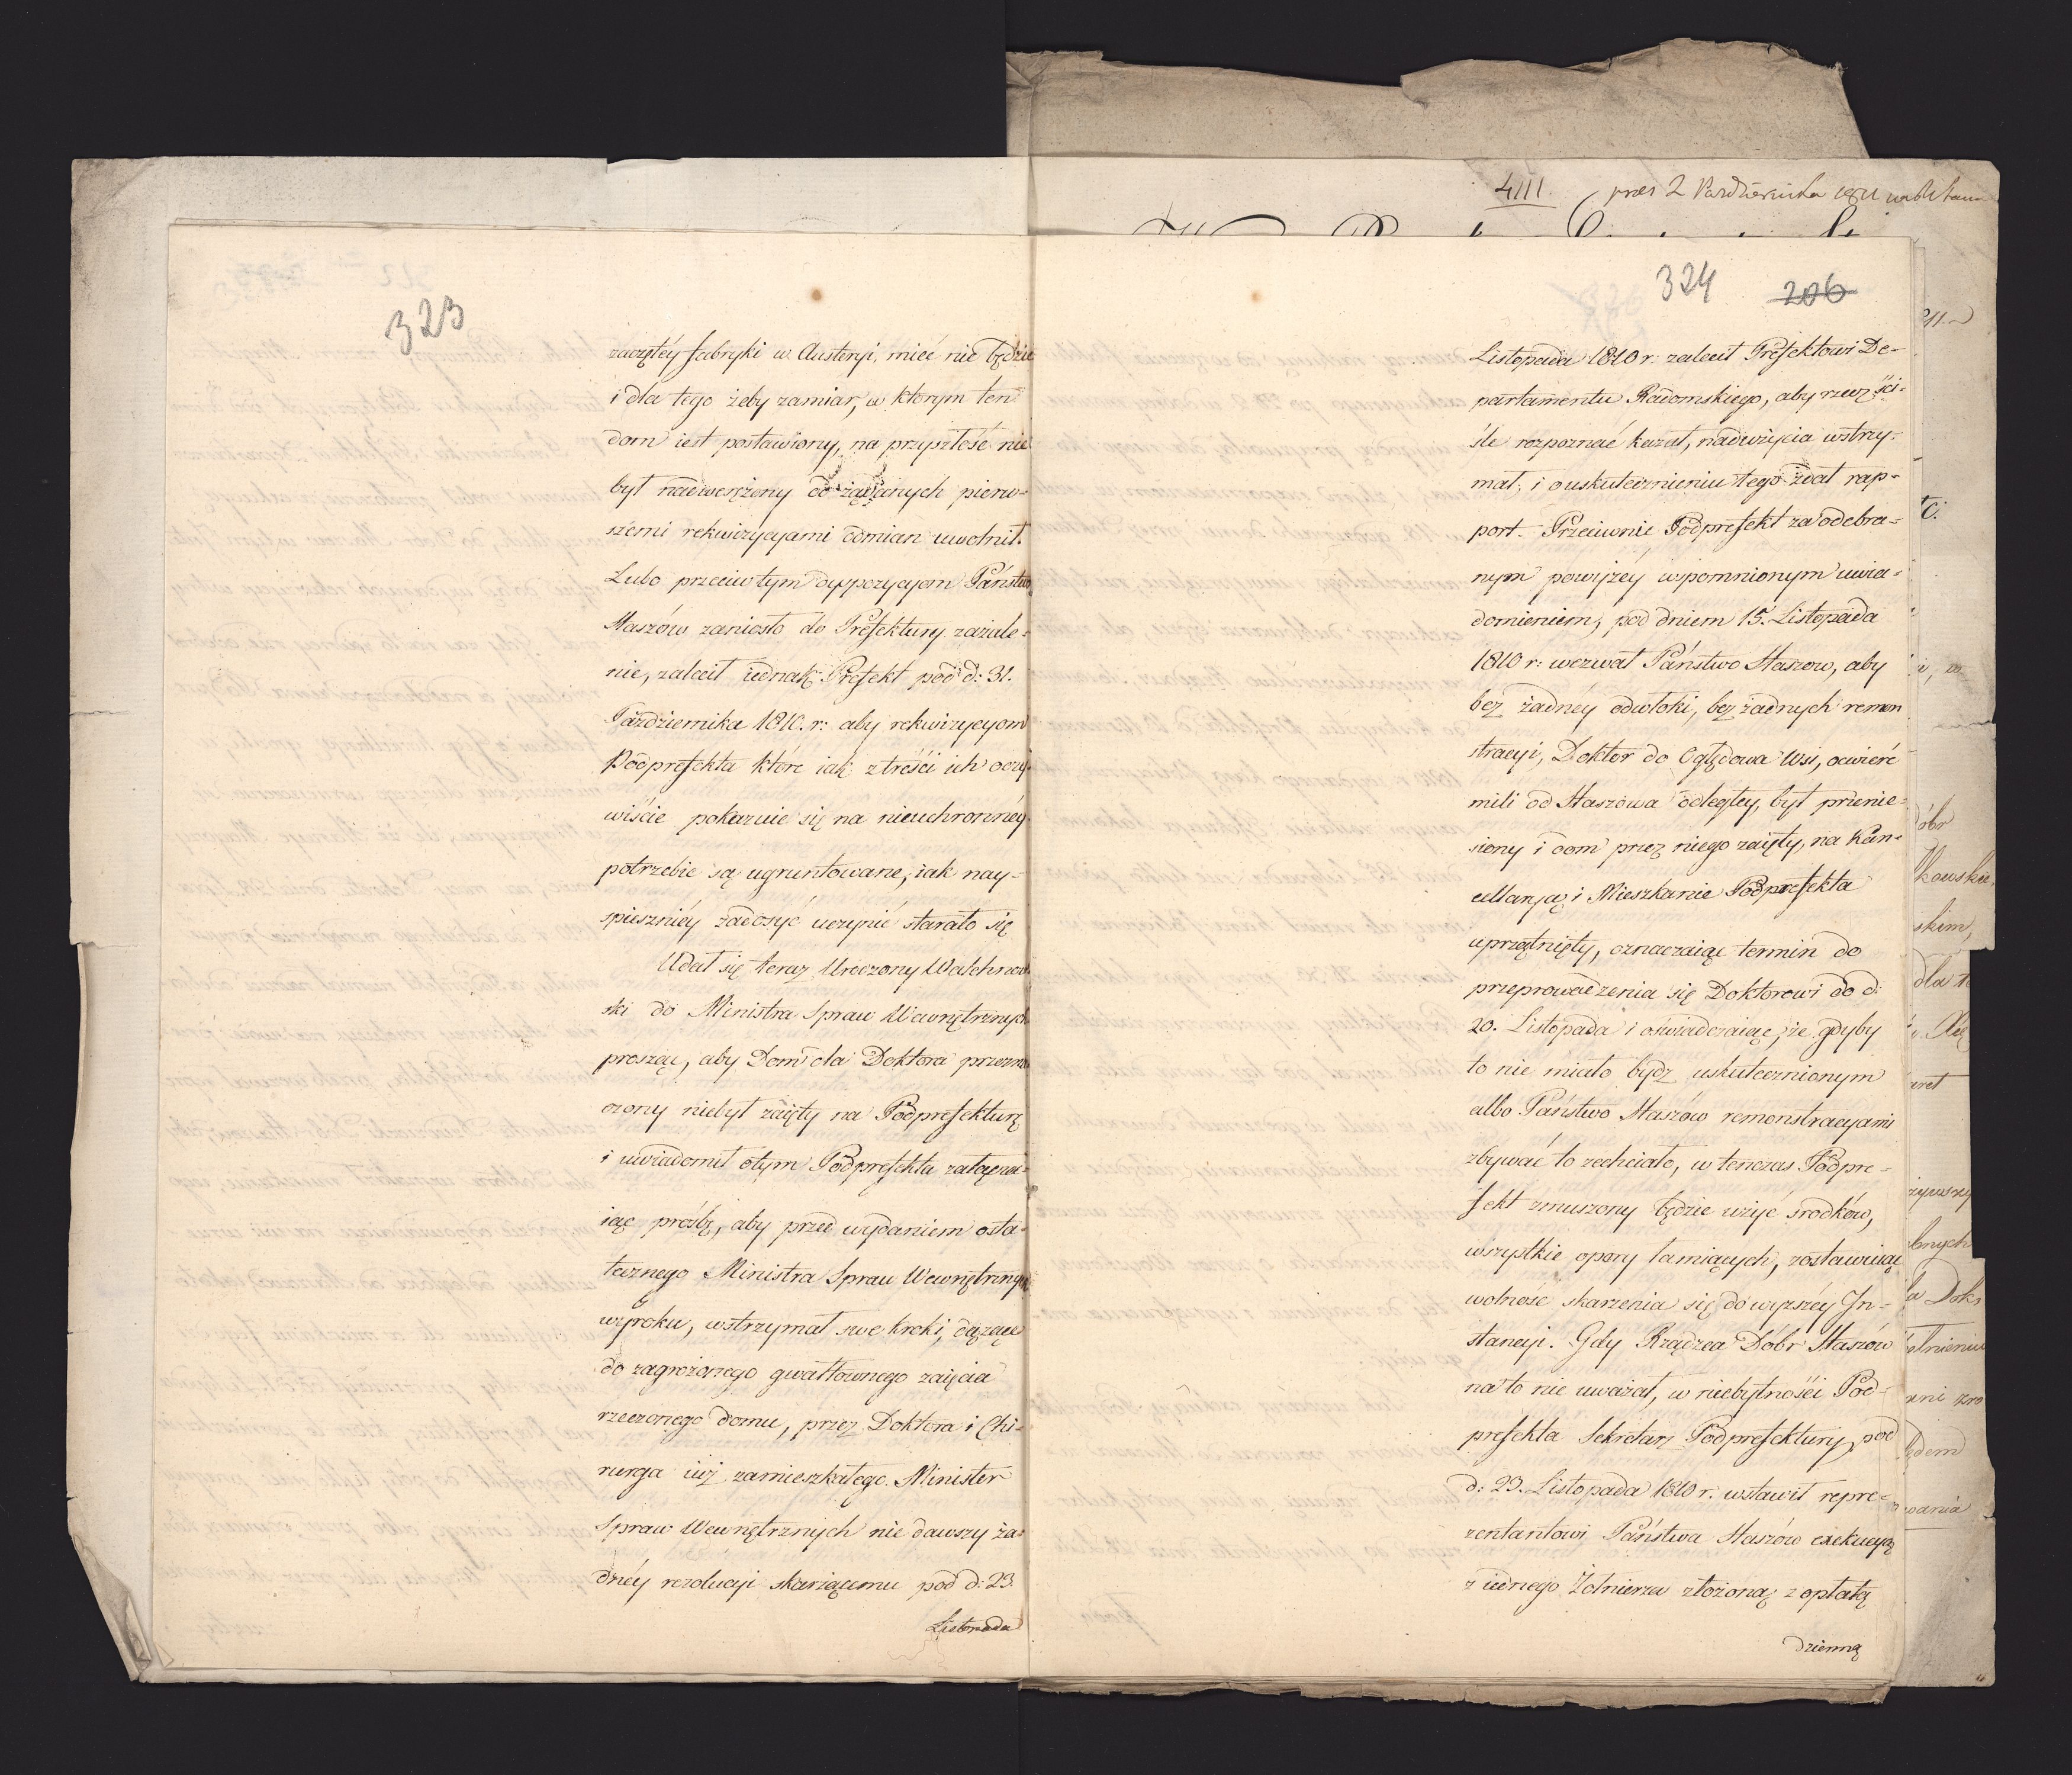 323
zaczętéy fabryki w Austeryi, mieć nie będzie
i dla tego żeby zamiar, w którym ten
dom iest postawiony, na przyszłość nie
był nadwerężony od żądanych pierw-
szemi rekwizycyami odmian uwolnił.
Lubo przeciw tym dyspozycyom Państwo
Staszów zaniosło do Prefektury zażale-
nie, zalecił iednak Prefekt pod d: 31.
Października 1810. r: aby rekwizycyom
Podprefekta które iak z treści ich oczy-
wiście pokazuie się na nieuchronnéy
potrzebie są ugruntowane, iak nay-
spieszniéy zadosyć uczynić starało się
Udał się teraz Urodzony Walchnow
ski do Ministra Spraw Wewnętrznych
prosząc, aby Dom dla Doktora przezna
czony niebył zaięty na Podprefekturę
i uwiadomił otym Podprefekta załącza-
iąc prośbę, aby przed wydaniem osta-
tecznego Ministra Spraw Wewnętrznych
wyroku, wstrzymał swe kroki, dążące
do zagrożonego gwałtownego zaięcia
rzeczonego domu, przez Doktora i Chi-
rurga iuż zamieszkałego. Minister
Spraw Wewnętrznych nie dawszy ża-
dnéy rezolucyi skarżącemu pod d: 23.
Listopada
4111. 2 Października
324 206
Listopada 1810 r: zalecił Prefektowi De-
partamentu Radomskiego, aby rzecz ści-
śle rozpoznać kazał, nadużycia wstrzy-
mał, i o uskutecznieniu tego zdał rap-
port. Przeciwnie Podprefekt za odebra-
nym powyżéy wpomnionym uwia-
domieniem, pod dniem 15. Listopada
1810 r: wezwał Państwo Staszow, aby
bez żadnéy odwłoki, bez żadnych remon
stracyi, Doktor do Oględowa Wsi, oćwierć
mili od Staszowa odległey, był przenie-
siony i dom przez niego zaięty, na Kan-
cellaryą i Mieszkanie Podprefekta
uprzątnięty, oznaczaiąc termin do
przeprowadzenia się Doktorowi do d:
20. Listopada i oświadczaiąc, że gdyby
to nie miało bydz uskutecznionym
albo Państwo Staszów remonstracyami
zbywać to zechciało, w tenczas Podpre-
fekt zmuszony będzie użyć srodków,
wszystkie opory łamiących, zostawuiąc
wolność skarżenia się do wyższéy In-
stancyi. Gdy Rządzca Dóbr Staszów
na to nie uważał, w niebytności Pod-
prefekta Sekretarz Podprefektury, pod
d: 23. Listopada 1810 r. wstawił repre-
zentantowi Państwa Staszów exekucyą
z iednego Żołnierza złożoną z opłatą
dzienną